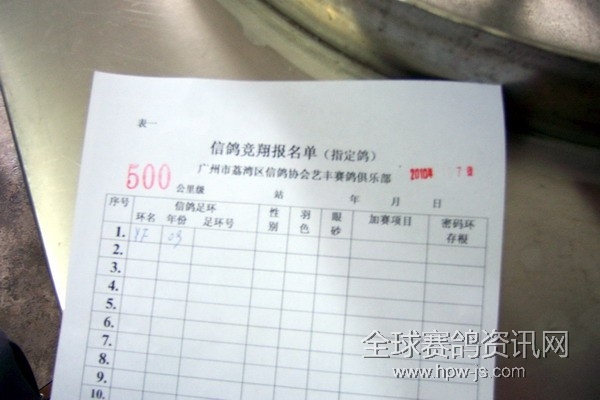 表一
信鸽竞翔报名单（指定鸽）
广州市荔湾区信鸽协会艺丰赛鸽俱乐部
500 公里级 站 年 月 日
序号 信鸽足环 性别 羽色 眼砂 加赛项目 密码环存根
环名 年份 足环号
1. YF 09
2.
3.
4.
5.
6.
7.
8.
9.
10.
全球赛鸽资讯网
www.hpw-js.com